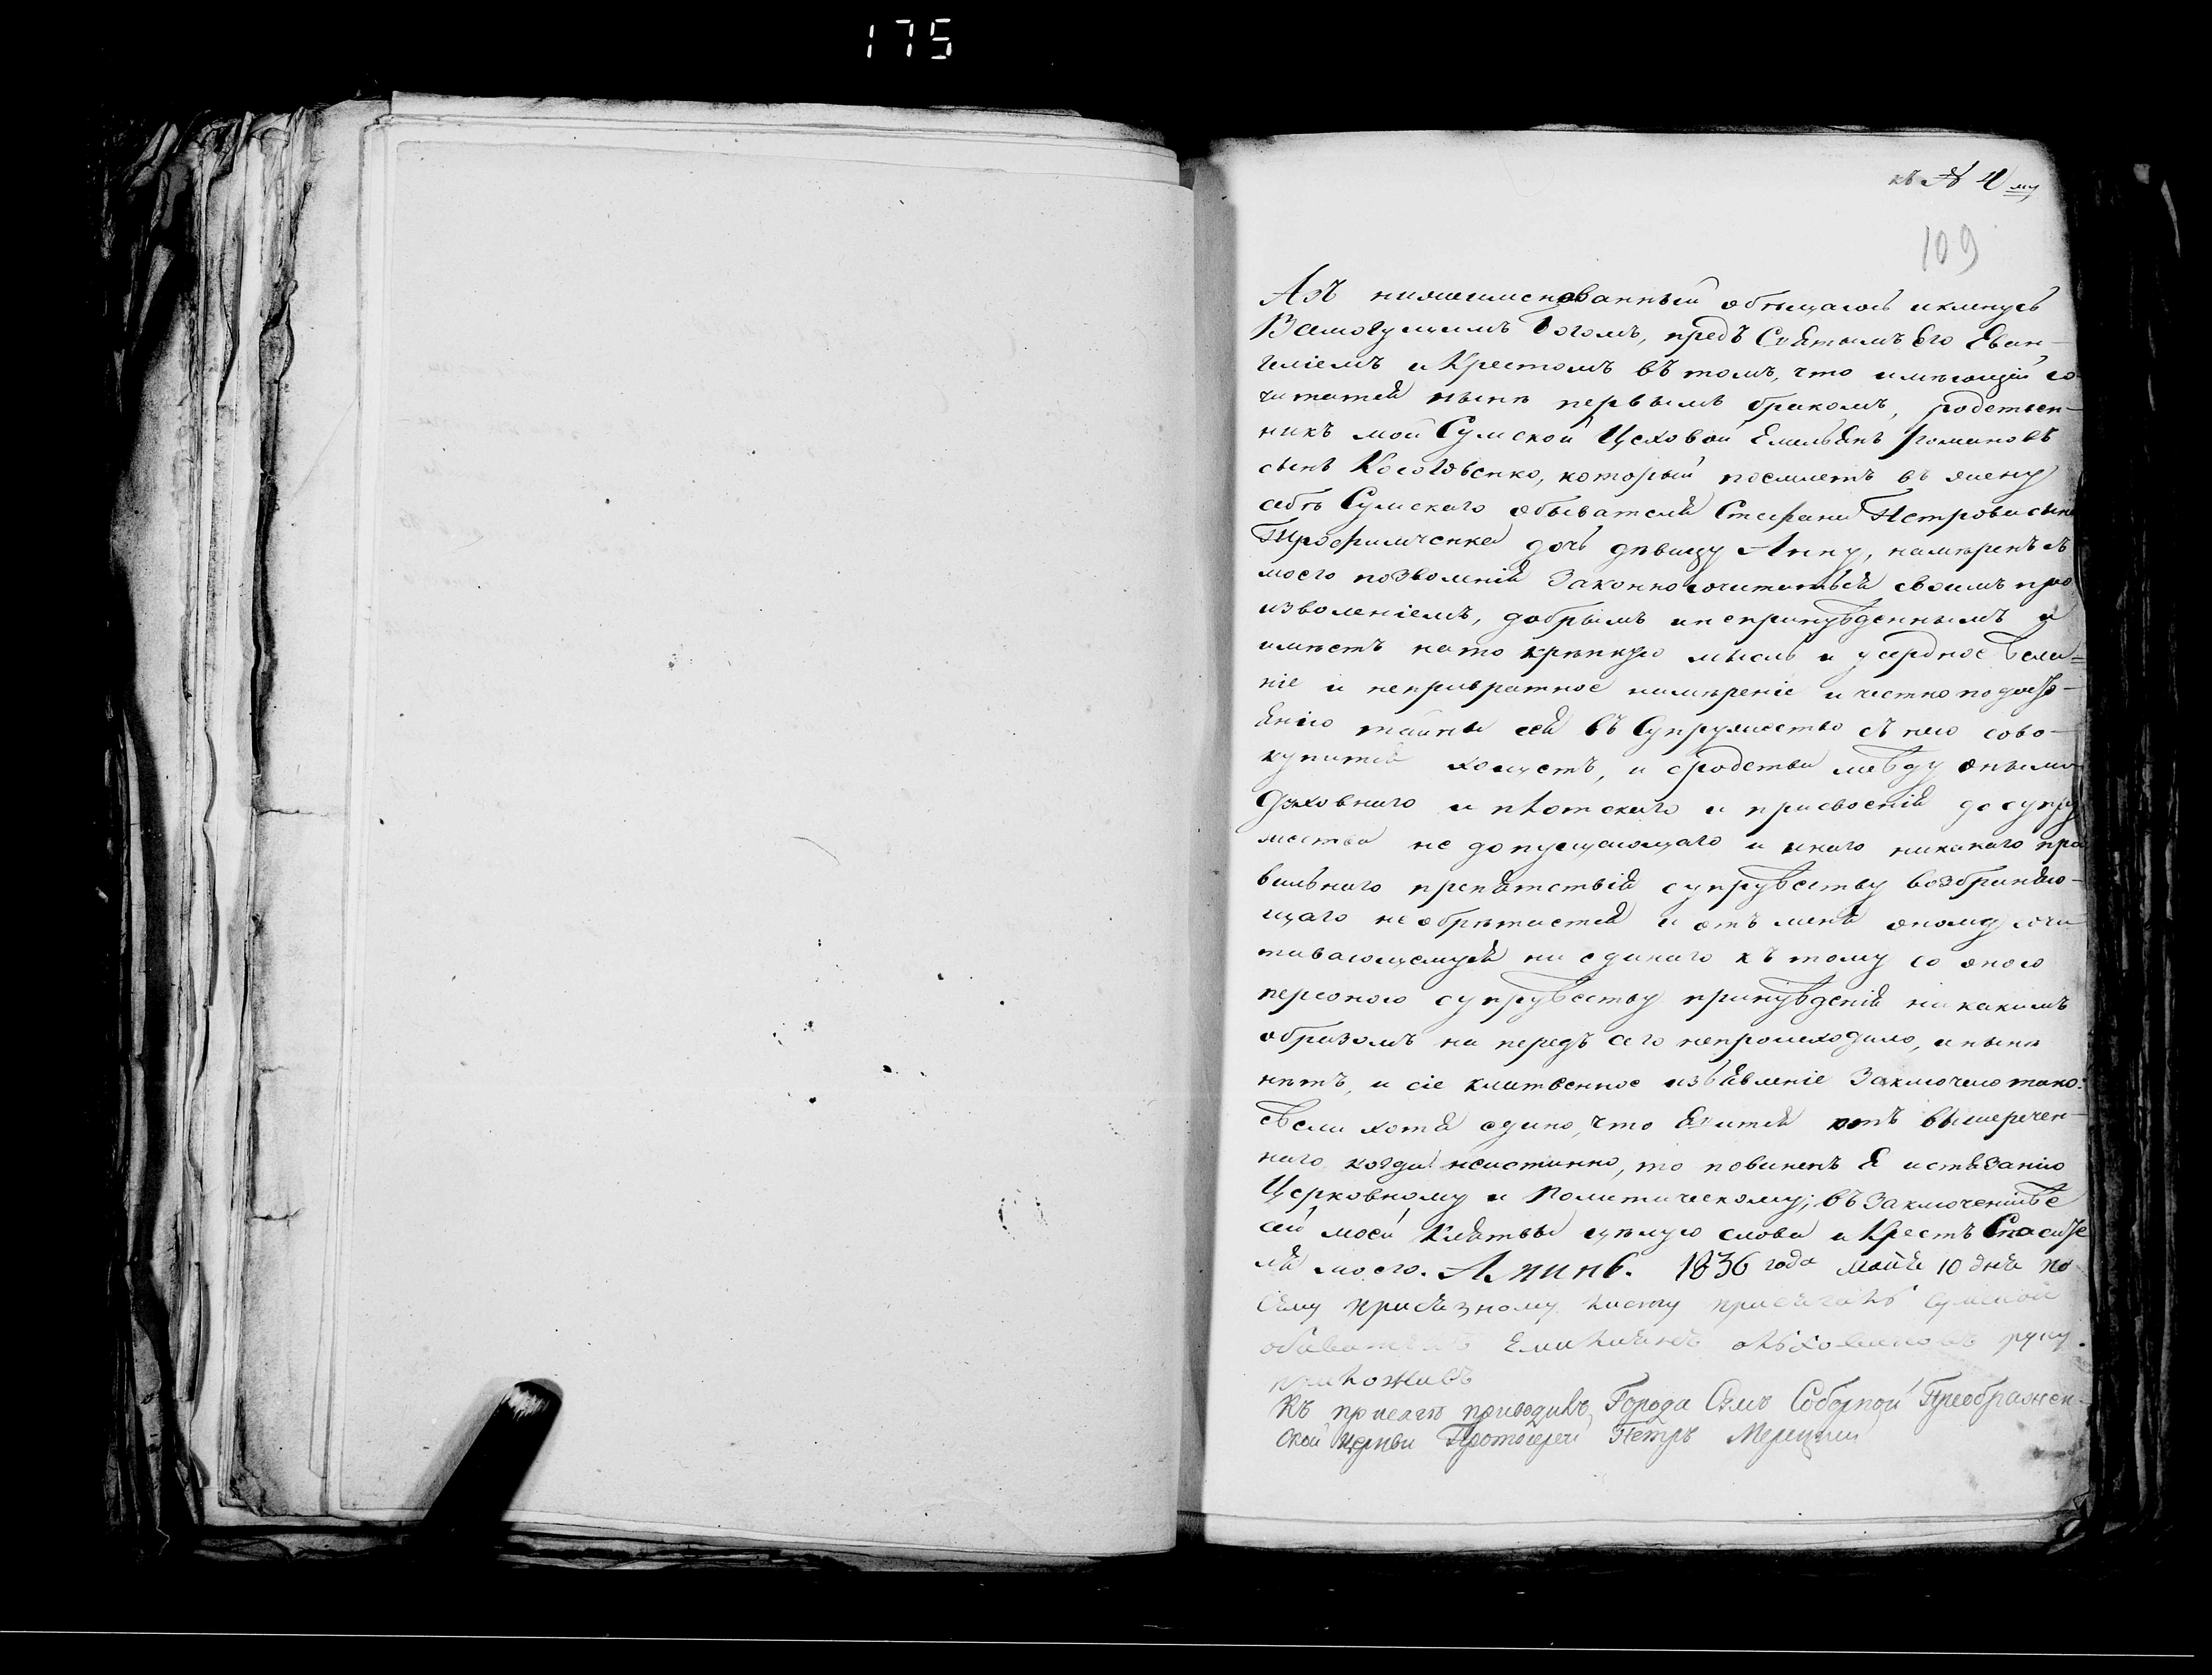 175
къ № 4му
109
Азъ нижеименованный обѣщаюсь и кленусь
Всемогущимъ Богомъ, предъ Святымъ Его Еван-
гелiемъ и Крестомъ въ томъ, что имѣющiй со-
читатся нынѣ первымъ бракомъ, родствен-
никъ мой Сумской Цеховой Емельянъ Романовъ
сынъ который поемлетъ въ жену
себѣ Сумскаго обывателя Стефана Петрова сына
Трофимченка дочь дѣвицу Анну, намѣренъ съ
моего позволенiя законно сочитаться своимъ про-
изволенiемъ, добрымъ и непринужденнымъ и
имѣетъ на то крѣпкую мысль и усердное жела=
нiе и непривратное намѣренiе и честно по досто-
янiю тайны сея въ Супружество съ нею сово-
купится хощетъ, и сродства между оными
духовнаго и плотскаго и присвоенiя до супру
жества не допущающаго и инаго никакаго пра
вильнаго препятствiя супружеству возбраняю-
щаго не обрѣтается и отъ меня оному сочи
тавающемуся ни единаго къ тому со оною
персоною супружеству принужденiя никакимъ
образомъ на передъ сего непроисходило, и нынѣ
нѣтъ, и сiе клятвенное изъявленiе заключаю тако:
ежели хотя едино, что явится отъ вышеречен-
наго когда неистинно, то повиненъ я истязанiю
Церковному и Политическому; въ заключенiе же
сей моей Клятвы цѣлую слова и Крестъ Спасите
ля моего. Аминь. 1836 года маiя 10 дня по
сему присяжному листу присягалъ Сумской
обыватель Емилиянъ руку
приложилъ
Къ присягѣ приводилъ Города Сумъ Соборной Преображен-
ской церкви Протоiерей Петръ